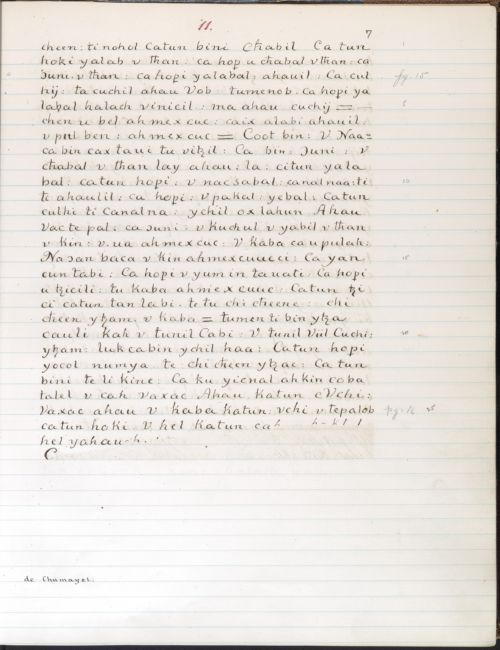 11.
7
cheen: ti nohol Catun bini Chabil Ca tun
hoki yalab v than: ca hop u chabal v than: ca
Juni: v than: ca hopi yalabal: ahauil: Ca cul
hij: ta cuchil ahau Vob: tumenob. ca hopi ya
labal halach vinicil: ma ahau cuchij =
chen u bel ahmex cuc: caix alabi ahauil
v pul ben: ahmex cuc = Coot bin: V Naa=
ca bin cax taui tu vitzil: Ca bin: Juni: V
chabal v than lay ahau: la: citun yala
bal: catun hopi: v nacsabal: canal naa: ti
ti ahaulil: ca hopi: v pakal: yebal: Catun
culhi ti Canalna: ychil ox lahun Ahau
Vac te pal: ca Juni: v kuchul v yabil v than
v kin: v. ua ahmex cuc: V kaba ca upulah:
Nasan baca v kin ahmex cuuc ci: Ca yan
cun tabi: Ca hopi v yumin tauati: Ca hopi
u tzicili: tu kaba ahmex cuuc: Catun tzi
ci catun tan labi. te tu chi cheene: chi
cheen ytzam. v kaba = tumen ti bin ytza
cauli kak v tunil Cabi: V tunil Viil Cuchi:
ytzam: luk cabin ychil haa: Catun hopi
yocol numya te chi cheen ytzae: Ca tun
bini te li kine: Ca ku yicnal ah kin coba
talel v cah vaxac Ahau Katun c Vchi:
Vaxac ahau v kaba katun vchi v tepalob
catun hoki V hel Katun cah
hel yahau
C
fg. 15
5
10
15
20
pg. 16
25
de Chumayel.